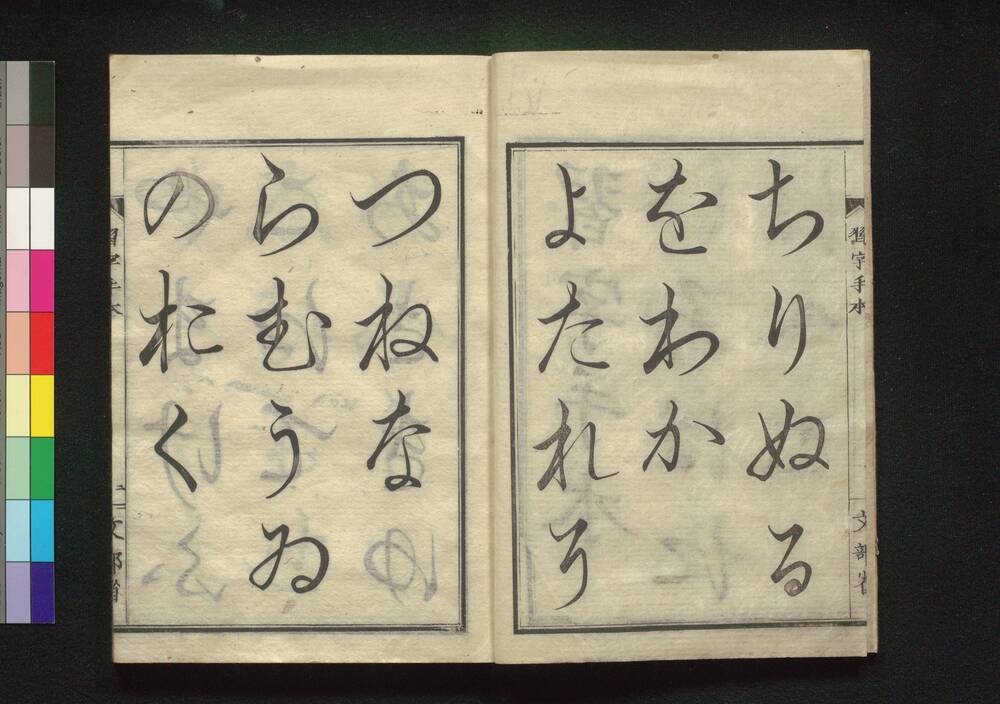 習字手本
文部省
ちりぬる
をわか
よたれそ
つねな
らむうゐ
のおく
習字手本
二
文部省